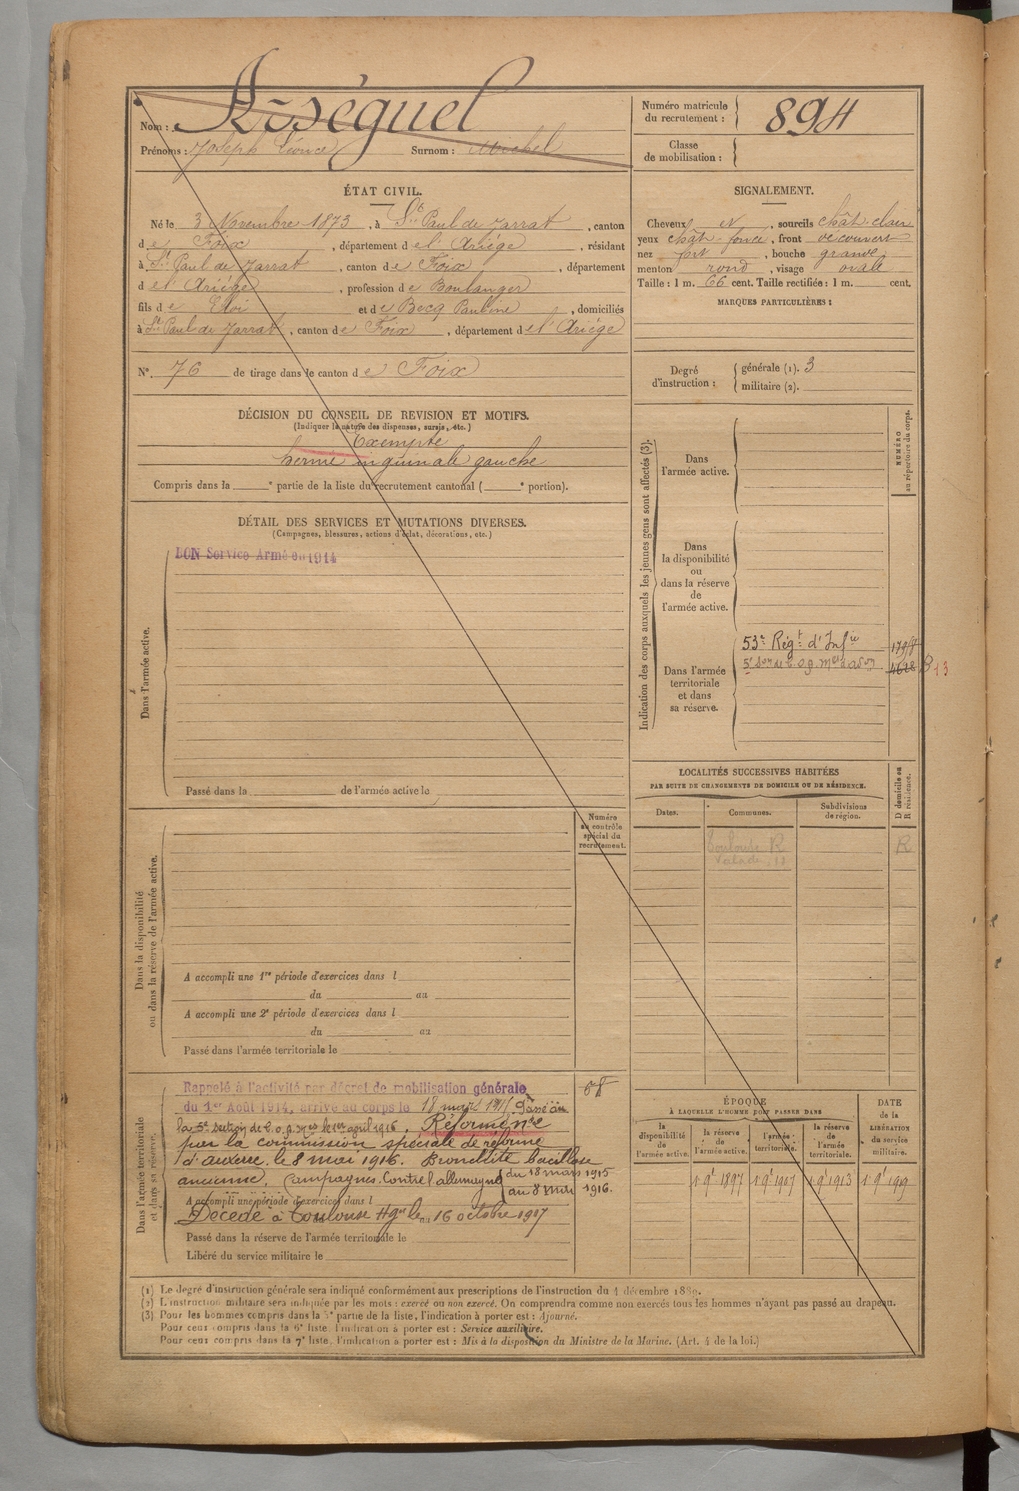 Nom : Asséguel
Prénoms : Joseph Léonce Surnom : Michel
Numéro matricule du recrutement : 894
Classe de mobilisation :
ÉTAT CIVIL.
Né le 3 Novembre 1873, à St Paul de Jarrat, canton
de Foix, département de l'Ariège, résidant
à St Paul de Jarrat, canton de Foix, département
de l'Ariège, profession de Boulanger
fils de Eloi et de Becq Pauline, domiciliés
à St Paul de Jarrat, canton de Foix, département de l'Ariège
N° 76 de tirage dans le canton de Foix
SIGNALEMENT.
Cheveux et, sourcils chât-clair
yeux chât-foncé, front découvert
nez pit, bouche grande
menton rond, visage ovale
Taille : 1 m. 66 cent. Taille rectifiée : 1 m. cent.
MARQUES PARTICULIÈRES :
Degré d'instruction : générale (1). 3
militaire (2).
DÉCISION DU CONSEIL DE REVISION ET MOTIFS.
(Indiquer la nature des dispenses, sursis, etc.)
Exempté
hernie inguinale gauche
Compris dans la e partie de la liste du recrutement cantonal ( e portion).
DÉTAIL DES SERVICES ET MUTATIONS DIVERSES.
(Campagnes, blessures, actions d'éclat, décorations, etc.)
Dans l'armée active.
BON Service Armé en 1914
Passé dans la de l'armée active le
Dans la disponibilité ou dans la réserve de l'armée active.
Numéro au contrôle spécial du recrutement.
A accompli une 1re période d'exercices dans l
du au
A accompli une 2e période d'exercices dans l
du au
Passé dans l'armée territoriale le
Dans l'armée territoriale et dans sa réserve.
Rappelé à l'activité par décret de mobilisation générale
du 1er Août 1914, arrivé au corps le 18 mars 1915. Passé à
la 5e section de C.O.A. le 1er avril 1916. Réformé n°2
par la commission spéciale de réforme
d'auxerre le 8 mai 1916. Bronchite bacillaire
ancienne. Campagnes Contre l'allemagne du 18 mars 1915
au 8 mai 1916.
A accompli une période d'exercices dans l
Décédé à Toulouse Hgne le 16 octobre 1917
du au
Passé dans la réserve de l'armée territoriale le
Libéré du service militaire le
Indication des corps auxquels les jeunes gens sont affectés (3).
NUMÉRO au répertoire du corps.
Dans l'armée active.
Dans la disponibilité ou dans la réserve de l'armée active.
Dans l'armée territoriale et dans sa réserve.
53e Régt d'Infie
4628 B 13
LOCALITÉS SUCCESSIVES HABITÉES
PAR SUITE DE CHANGEMENTS DE DOMICILE OU DE RÉSIDENCE.
Dates. Communes. Subdivisions de région. D domicile ou R résidence.
Toulouse R R
ÉPOQUE
À LAQUELLE L'HOMME DOIT PASSER DANS
DATE de la LIBÉRATION du service militaire.
la disponibilité de l'armée active.
la réserve de l'armée active.
l'armée territoriale.
la réserve de l'armée territoriale.
1 9e 1897 1 9e 1907 1 9e 1913 1 9e 1919
(1) Le degré d'instruction générale sera indiqué conformément aux prescriptions de l'instruction du 4 décembre 1889.
(2) L'instruction militaire sera indiquée par les mots : exercé ou non exercé. On comprendra comme non exercés tous les hommes n'ayant pas passé au drapeau.
(3) Pour les hommes compris dans la 5e partie de la liste, l'indication à porter est : Ajourné.
Pour ceux compris dans la 6e liste l'indication à porter est : Service auxiliaire.
Pour ceux compris dans la 7e liste, l'indication à porter est : Mis à la disposition du Ministre de la Marine. (Art. 4 de la loi.)